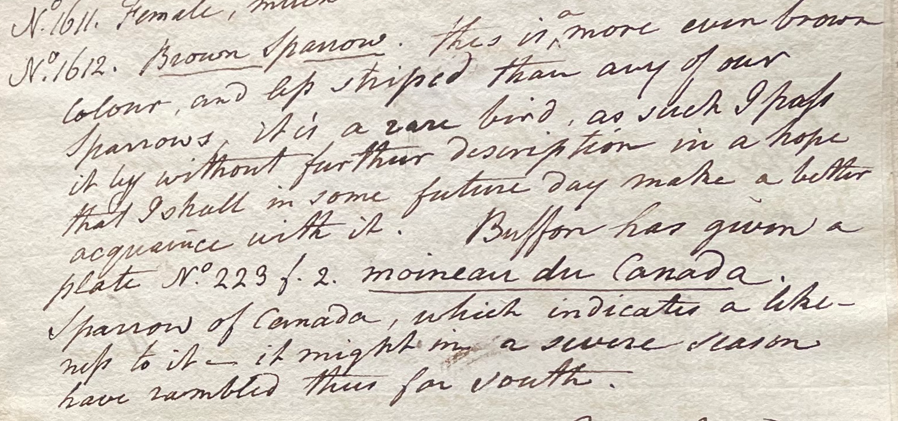 No. 1611. Female, much
No. 1612. Brown Sparrow. this is a more even brown
colour, and less striped than any of our
sparrows, it is a rare bird, as such I pass
it by without further description in a hope
that I shall in some future day make a better
acquaince with it. Buffon has given a
plate No. 223 f. 2. moineau du Canada.
Sparrow of Canada, which indicates a like-
ness to it — it might in a severe season
have rambled thus far south.